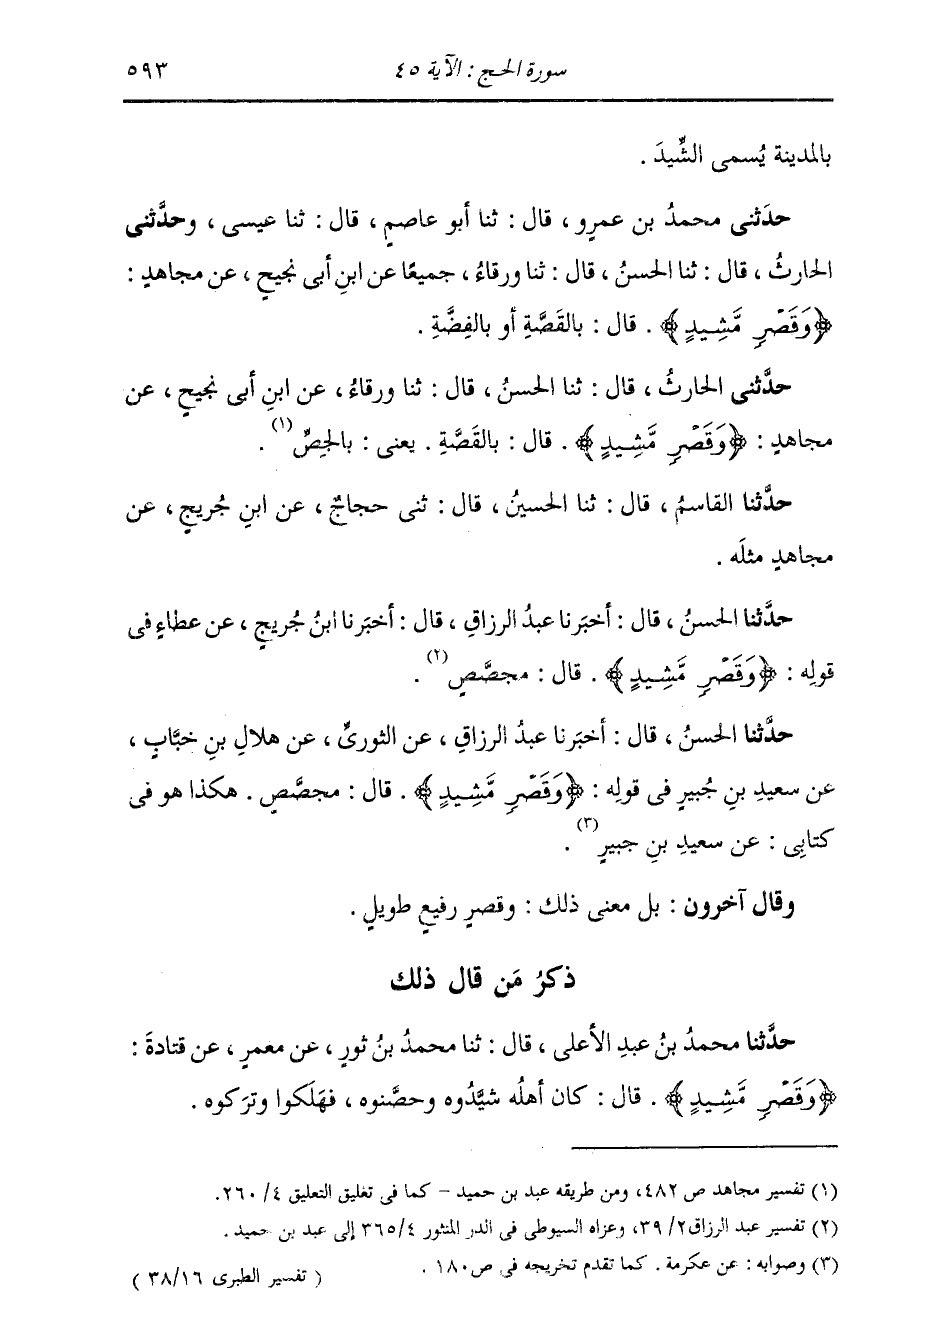 سورة الحج : الآية ٤٥
٥٩٣
بالمدينة يُسمى الشِّيدَ .
حدَثنى محمدُ بن عمرٍو ، قال : ثنا أبو عاصمٍ ، قال : ثنا عيسى ، وحدَّثنى
الحارثُ ، قال : ثنا الحسنُ ، قال : ثنا ورقاءُ ، جميعًا عن ابنِ أبى نجيحٍ ، عن مجاهدٍ :
﴿وَقَصْرٍ مَّشِيدٍ﴾ . قال : بالقَصَّةِ أو بالفِضَّةِ .
حدَّثنى الحارثُ ، قال : ثنا الحسنُ ، قال : ثنا ورقاءُ ، عن ابنِ أبى نجيحٍ ، عن
مجاهدٍ : ﴿وَقَصْرٍ مَّشِيدٍ﴾ . قال : بالقَصَّةِ . يعنى : بالجِصِّ (١) .
حدَّثنا القاسمُ ، قال : ثنا الحسينُ ، قال : ثنى حجاجٌ ، عن ابنِ جُريجٍ ، عن
مجاهدٍ مثلَه .
حدَّثنا الحسنُ ، قال : أخبَرنا عبدُ الرزاقِ ، قال : أخبَرنا ابنُ جُريجٍ ، عن عطاءٍ فى
قولِه : ﴿وَقَصْرٍ مَّشِيدٍ﴾ . قال : مجصَّصٍ (٢) .
حدَّثنا الحسنُ ، قال : أخبَرنا عبدُ الرزاقِ ، عن الثورىِّ ، عن هلالِ بنِ خبَّابٍ ،
عن سعيدِ بنِ جُبيرٍ فى قولِه : ﴿وَقَصْرٍ مَّشِيدٍ﴾ . قال : مجصَّصٍ . هكذا هو فى
كتابِى : عن سعيدِ بنِ جبيرٍ (٣) .
وقال آخرون : بل معنى ذلك : وقصرٍ رفيعٍ طويلٍ .
ذكرُ مَن قال ذلك
حدَّثنا محمدُ بنُ عبدِ الأعلى ، قال : ثنا محمدُ بنُ ثورٍ ، عن معمرٍ ، عن قتادةَ :
﴿وَقَصْرٍ مَّشِيدٍ﴾ . قال : كان أهلُه شيَّدُوه وحصَّنوه ، فهَلَكوا وترَكوه .
(١) تفسير مجاهد ص ٤٨٢، ومن طريقه عبد بن حميد – كما فى تغليق التعليق ٤/ ٢٦٠.
(٢) تفسير عبد الرزاق٢/ ٣٩، وعزاه السيوطى فى الدر المنثور ٣٦٥/٤ إلى عبد بن حميد .
(٣) وصوابه : عن عكرمة . كما تقدم تخريجه فى ص١٨٠ .
( تفسير الطبرى ٣٨/١٦ )